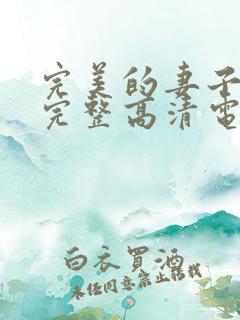 完美的妻子
完整高清电
白衣買酒
未经同意禁止转载